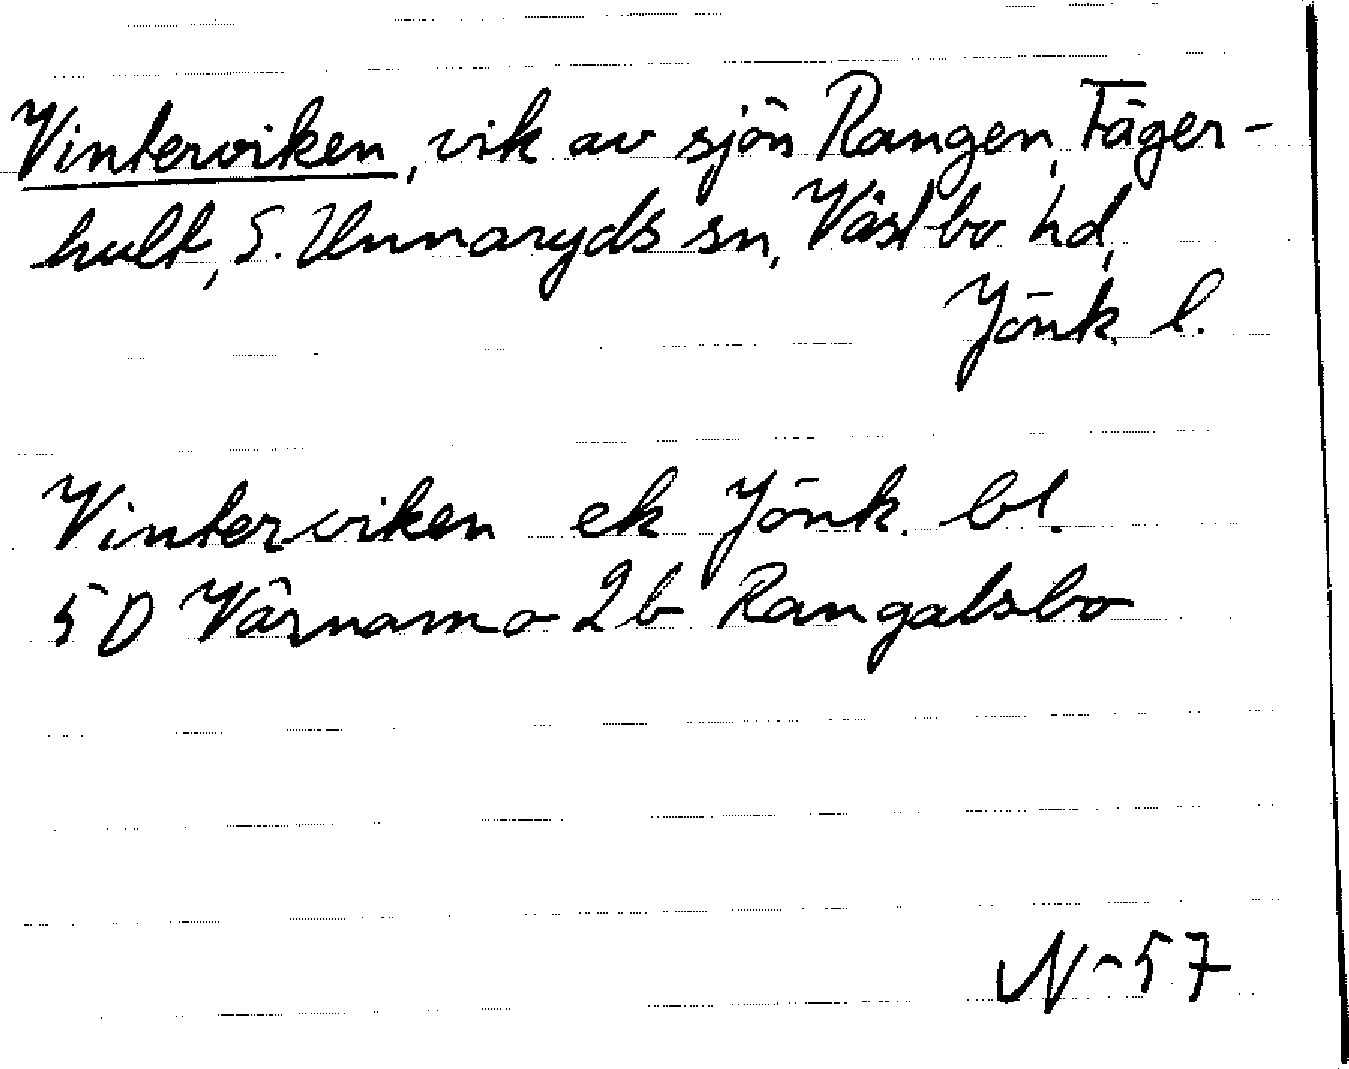 Vinterviken, vik av sjön Rangen, Fäger-
hult, S. Unnaryds sn, Västbo hd,
Jönk. l.
Vinterviken ek Jönk. bl.
5D Värnamo 2b Rangalsbo
N-57